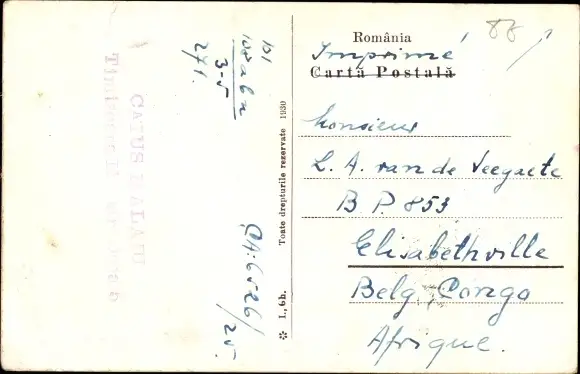 România
Imprimé
Cartă Postală
Monsieur
L. A. van de Veegaete
B P. 853
Elisabethville
Belg. Congo
Afrique.
Toate drepturile rezervate 1930
✻ I., 6 b.
3-5
271.
CAIUS